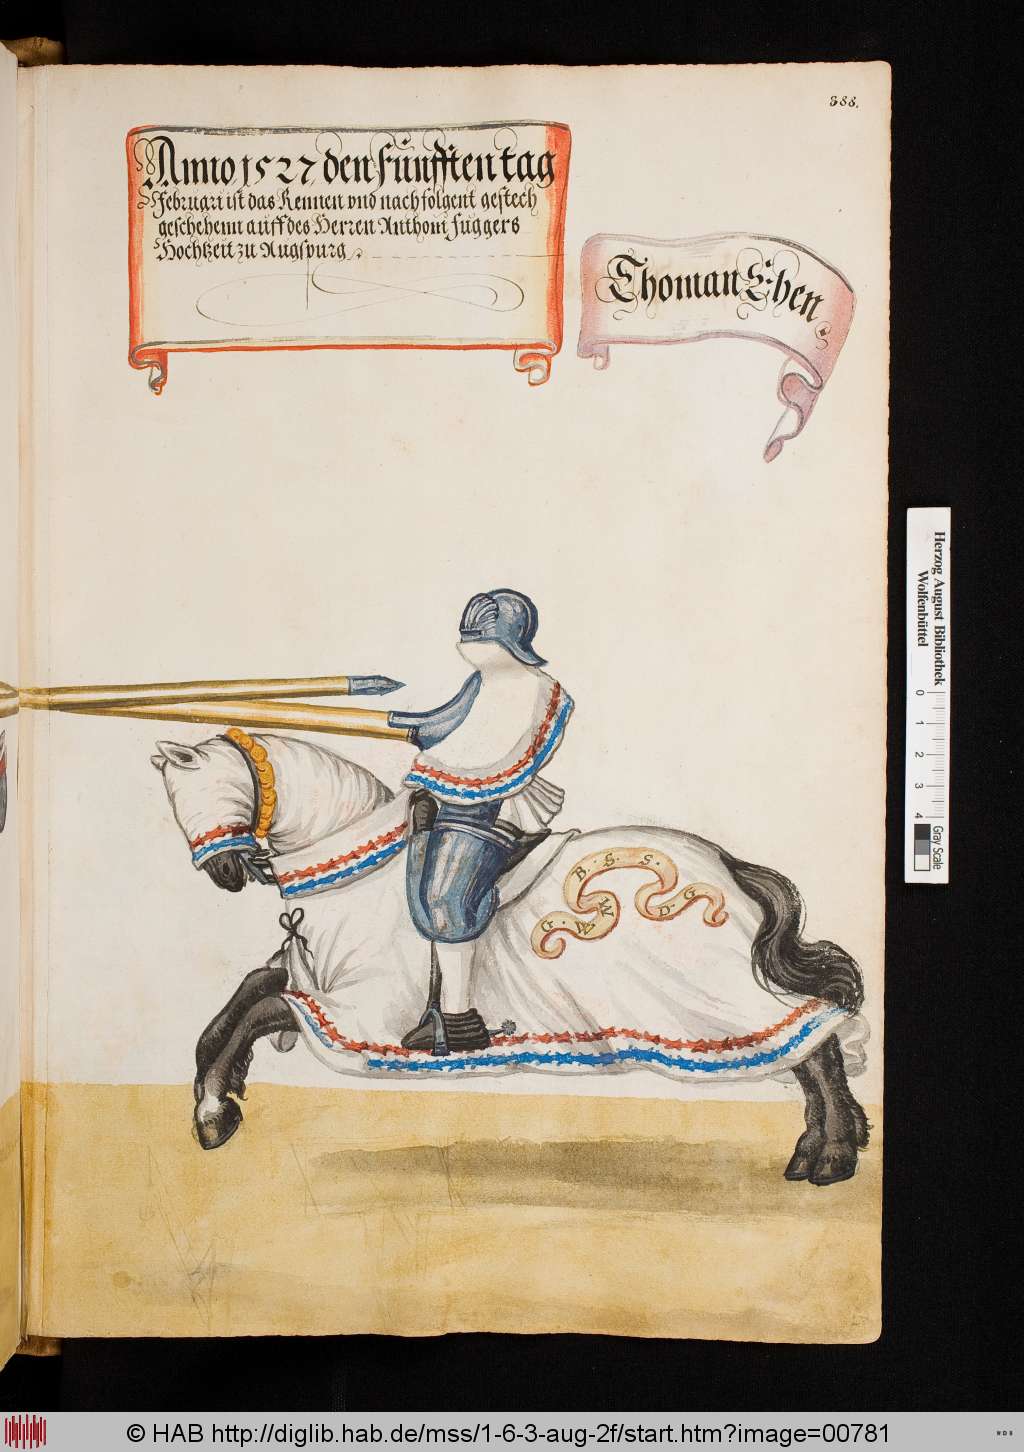 388.
Anno 1527, den Fünfften tag
Februari ist das Rennen vnd nachfolgent gestech
geschehenn auff des Herren Anthoni Fuggers
Hochtzeit zu Augspurg
Thoman Ehen
B. S. S.
G. W. W. D. G
Herzog August Bibliothek
Wolfenbüttel
0 1 2 3 4
Gray Scale
© HAB http://diglib.hab.de/mss/1-6-3-aug-2f/start.htm?image=00781